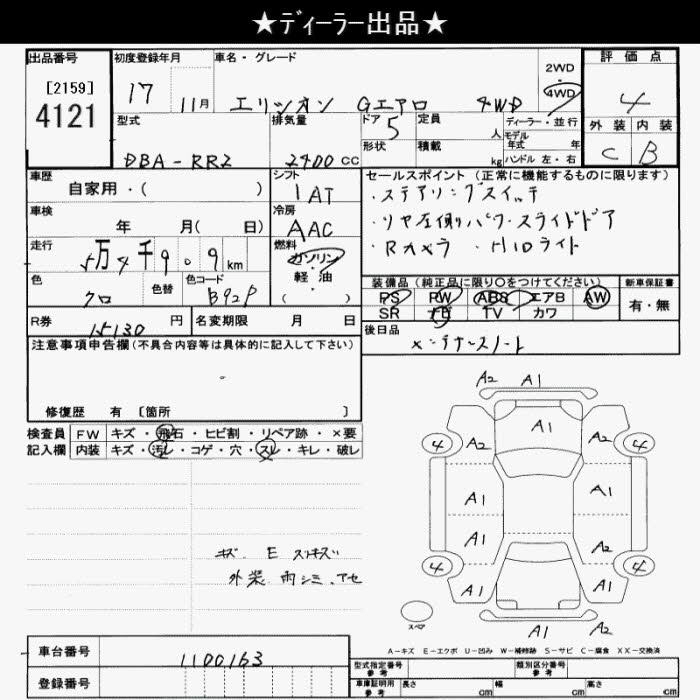 ★ディーラー出品★
出品番号
[2159]
4121
初度登録年月
17 11月
車名・グレード
エリシオン Gエアロ 4WD
2WD
・
4WD
評価点
4
外装 内装
C B
型式
DBA-RR2
排気量
2400 cc
ドア 5
形状
定員 人
積載 kg
ディーラー・並行
モデル
年式 年
ハンドル 左・右
車歴
自家用・( )
シフト
IAT
車検
年 月( 日)
冷房
AAC
走行
5万4千9 0 9 km
燃料
ガソリン
・
軽・油
( )
色
クロ
色替
色コード
B92P
R券 15130 円
名変期限 月 日
セールスポイント(正常に機能するものに限ります)
・ステアリングスイッチ
・リヤ左側パワースライドドア
・Rカメラ ・HIDライト
装備品(純正品に限り○をつけてください)
新車保証書
PS PW ABS エアB AW
SR TV カワ
有・無
後日品
メンテナンスノート
注意事項申告欄(不具合内容等は具体的に記入して下さい)
修復歴 有 [箇所 ]
検査員 FW キズ・飛石・ヒビ割・リペア跡・×要
記入欄 内装 キズ・汚レ・コゲ・穴・スレ・キレ・破レ
キズ E スリキズ
外装 雨シミ、アセ
A2 A1
A1
4 A2 A2 4
A1 A1
A1 A2
4 A1 A1 4
スペア
A1 A2
A-キズ E-エクボ U-凹み W-補修跡 S-サビ C-腐食 XX-交換済
車台番号 1100163
登録番号
型式指定番号
参考
類別区分番号
参考
車庫証明用
参考
長さ cm 幅 cm 高さ cm